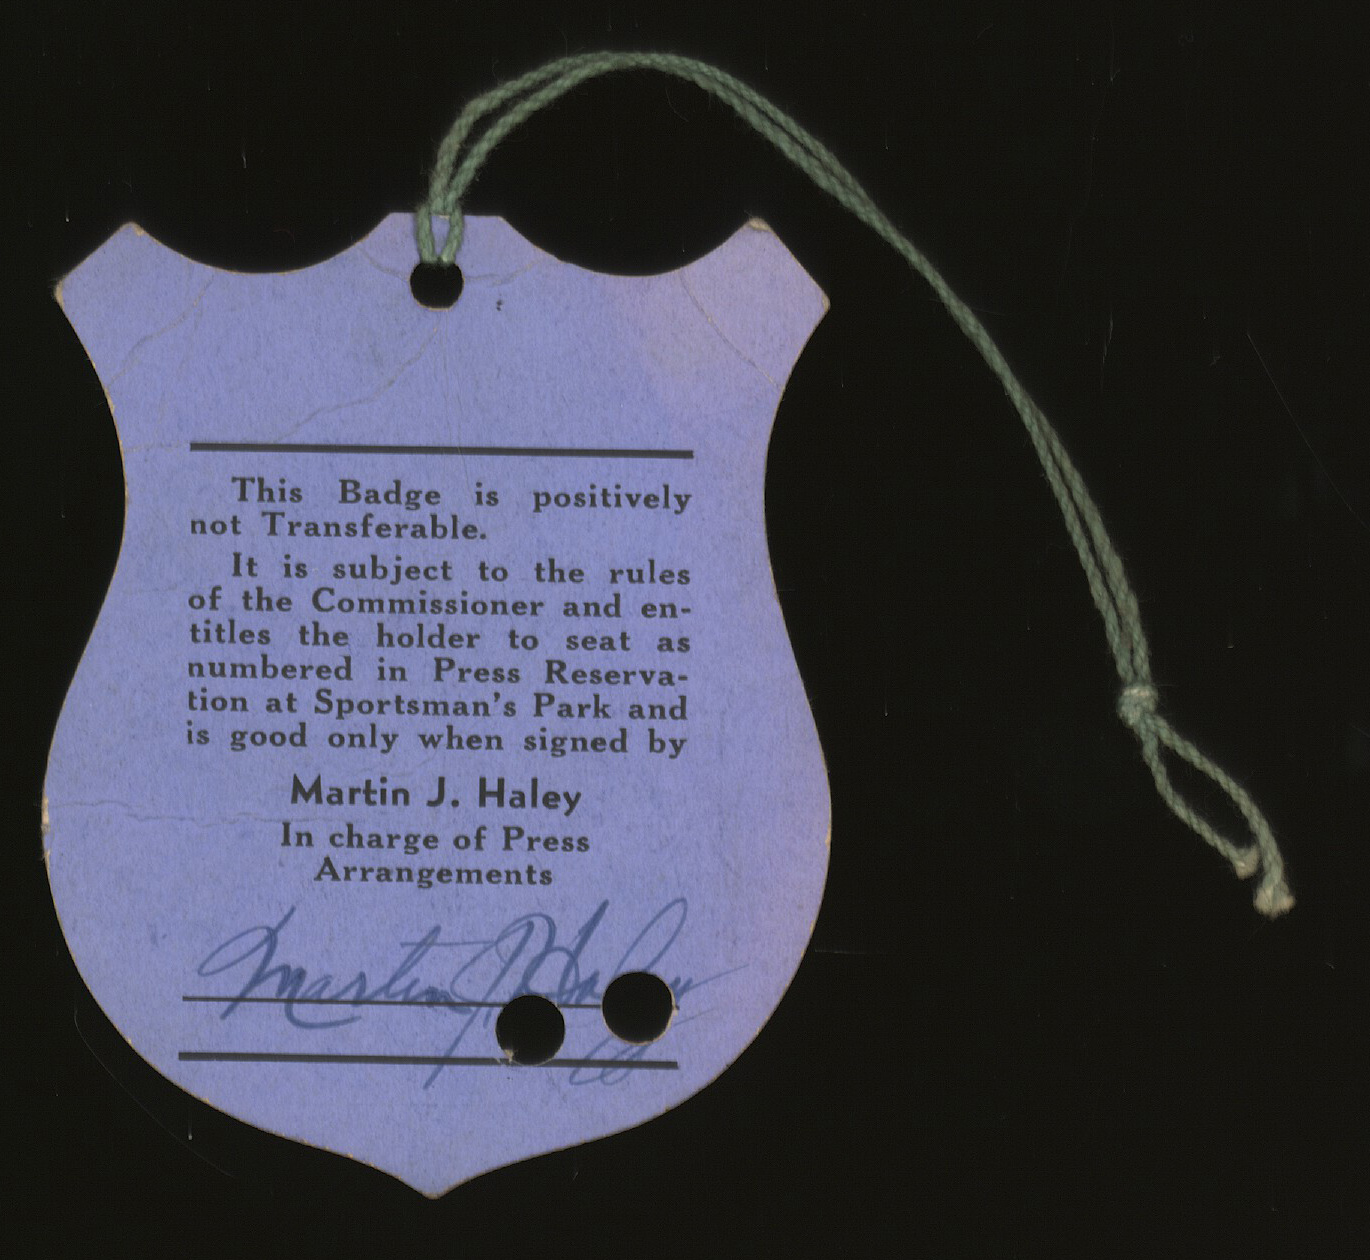 This Badge is positively
not Transferable.
It is subject to the rules
of the Commissioner and en-
titles the holder to seat as
numbered in Press Reserva-
tion at Sportsman's Park and
is good only when signed by
Martin J. Haley
In charge of Press
Arrangements
Martin J Haley